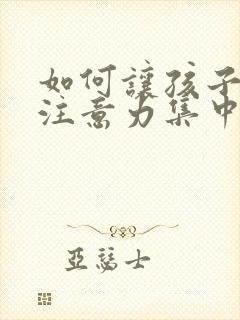 如何讓孩子
注意力集中
亞瑟士